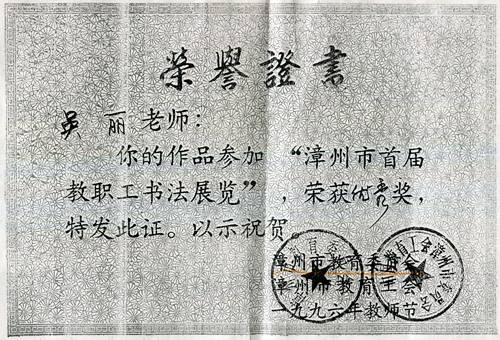 榮譽證書
吴丽老师:
你的作品参加“漳州市首届
教职工书法展览”,荣获优秀奖,
特发此证。以示祝贺。
漳州市教育委员会
漳州市教育工会
一九九六年教师节